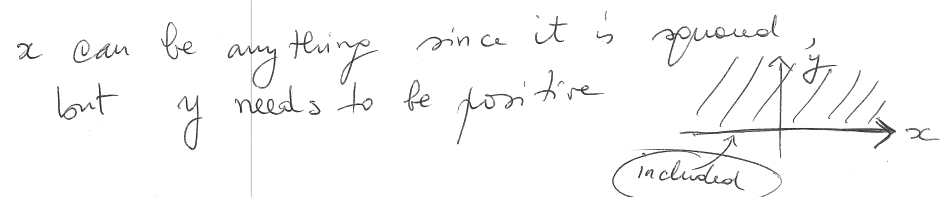 x can be any thing since it is squared,
but y needs to be positive
y
x
included